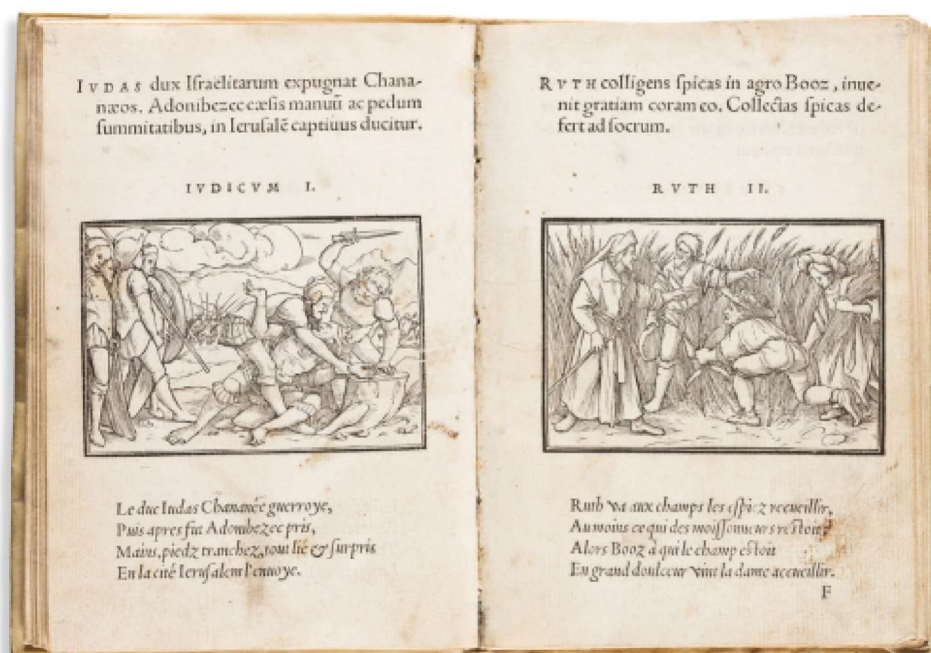 IVDAS dux Iſraëlitarum expugnat Chana-
næos. Adonibezec cæſis manuū ac pedum
ſummitatibus, in Ieruſalē captiuus ducitur.
IVDICVM I.
Le duc Iudas Chananée guerroye,
Puis apres fut Adonibezec pris,
Mains, piedz tranchez, tout lié & ſurpris
En la cité Ieruſalem l'enuoye.
RVTH colligens ſpicas in agro Booz, inue-
nit gratiam coram eo. Collectas ſpicas de-
fert ad ſocrum.
RVTH II.
Ruth va aux champs les eſpiz recueillir,
Au moins ce qui des moiſſonneurs reſtoit:
Alors Booz à qui le champ eſtoit
En grand doulceur vint la dame accueillir.
F